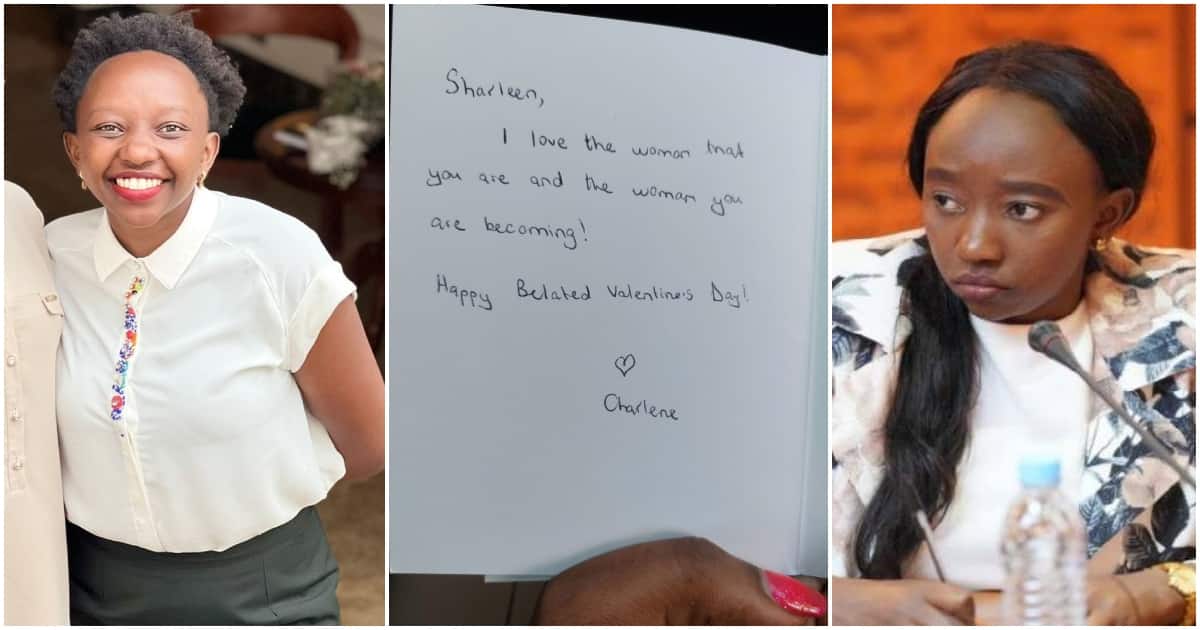 Sharleen,
I love the woman that
you are and the woman you
are becoming!
Happy Belated Valentine's Day!
Charlene